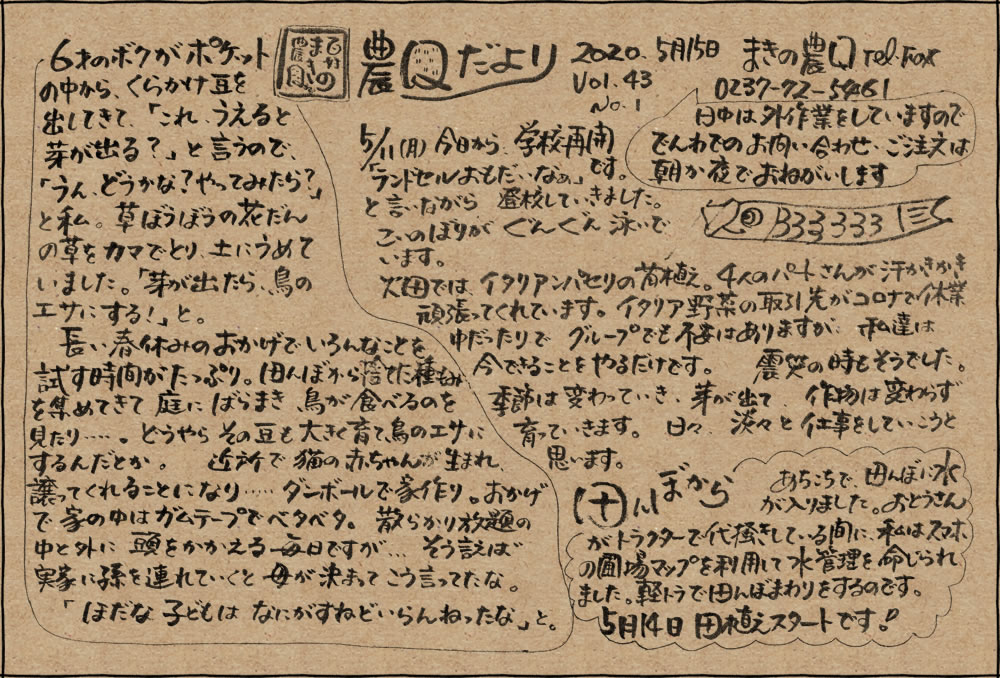 まきの
農園
農園だより
2020. 5月15日
Vol. 43
No. 1
まきの農園 Tel.Fax
0237-72-5461
日中は外作業をしていますので
でんわでのお問い合わせ、ご注文は
朝か夜でおねがいします
6才のボクがポケット
の中から、くらかけ豆を
出してきて、「これ、うえると
芽が出る?」と言うので、
「うん、どうかな?やってみたら?」
と私。草ぼうぼうの花だん
の草をカマでとり、土にうめて
いました。「芽が出たら、鳥の
エサにする!」と。
長い春休みのおかげでいろんなことを
試す時間がたっぷり。田んぼから捨てた種もみ
を集めてきて庭にばらまき鳥が食べるのを
見たり……。どうやらその豆も大きく育て、鳥のエサに
するんだとか。 近所で猫の赤ちゃんが生まれ、
譲ってくれることになり……ダンボールで家作り。おかげ
で家の中はガムテープでベタベタ。散らかり放題の
中と外に頭をかかえる毎日ですが…そう言えば
実家に孫を連れていくと母が決まってこう言ってたな。
「ほだな子どもはなにがすねどいらんねったな」と。
5/11(月)今日から、学校再開
です。
「ランドセルおもだいなぁ」
と言いながら登校していきました。
こいのぼりがぐんぐん泳いで
います。
畑では、イタリアンパセリの苗植え。4人のパートさんが汗かきかき
頑張ってくれています。イタリア野菜の取引先がコロナで休業
中だったりでグループでも不安はありますが、私達は
今できることをやるだけです。 震災の時もそうでした。
季節は変わっていき、芽が出て、作物は変わらず
育っていきます。日々、淡々と仕事をしていこうと
思います。
田んぼから
あちこちで、田んぼに水
が入りました。おとうさん
がトラクターで代掻きしている間に、私はスマホ
の圃場マップを利用して水管理を命じられ
ました。軽トラで田んぼまわりをするのです。
5月14日 田植えスタートです!